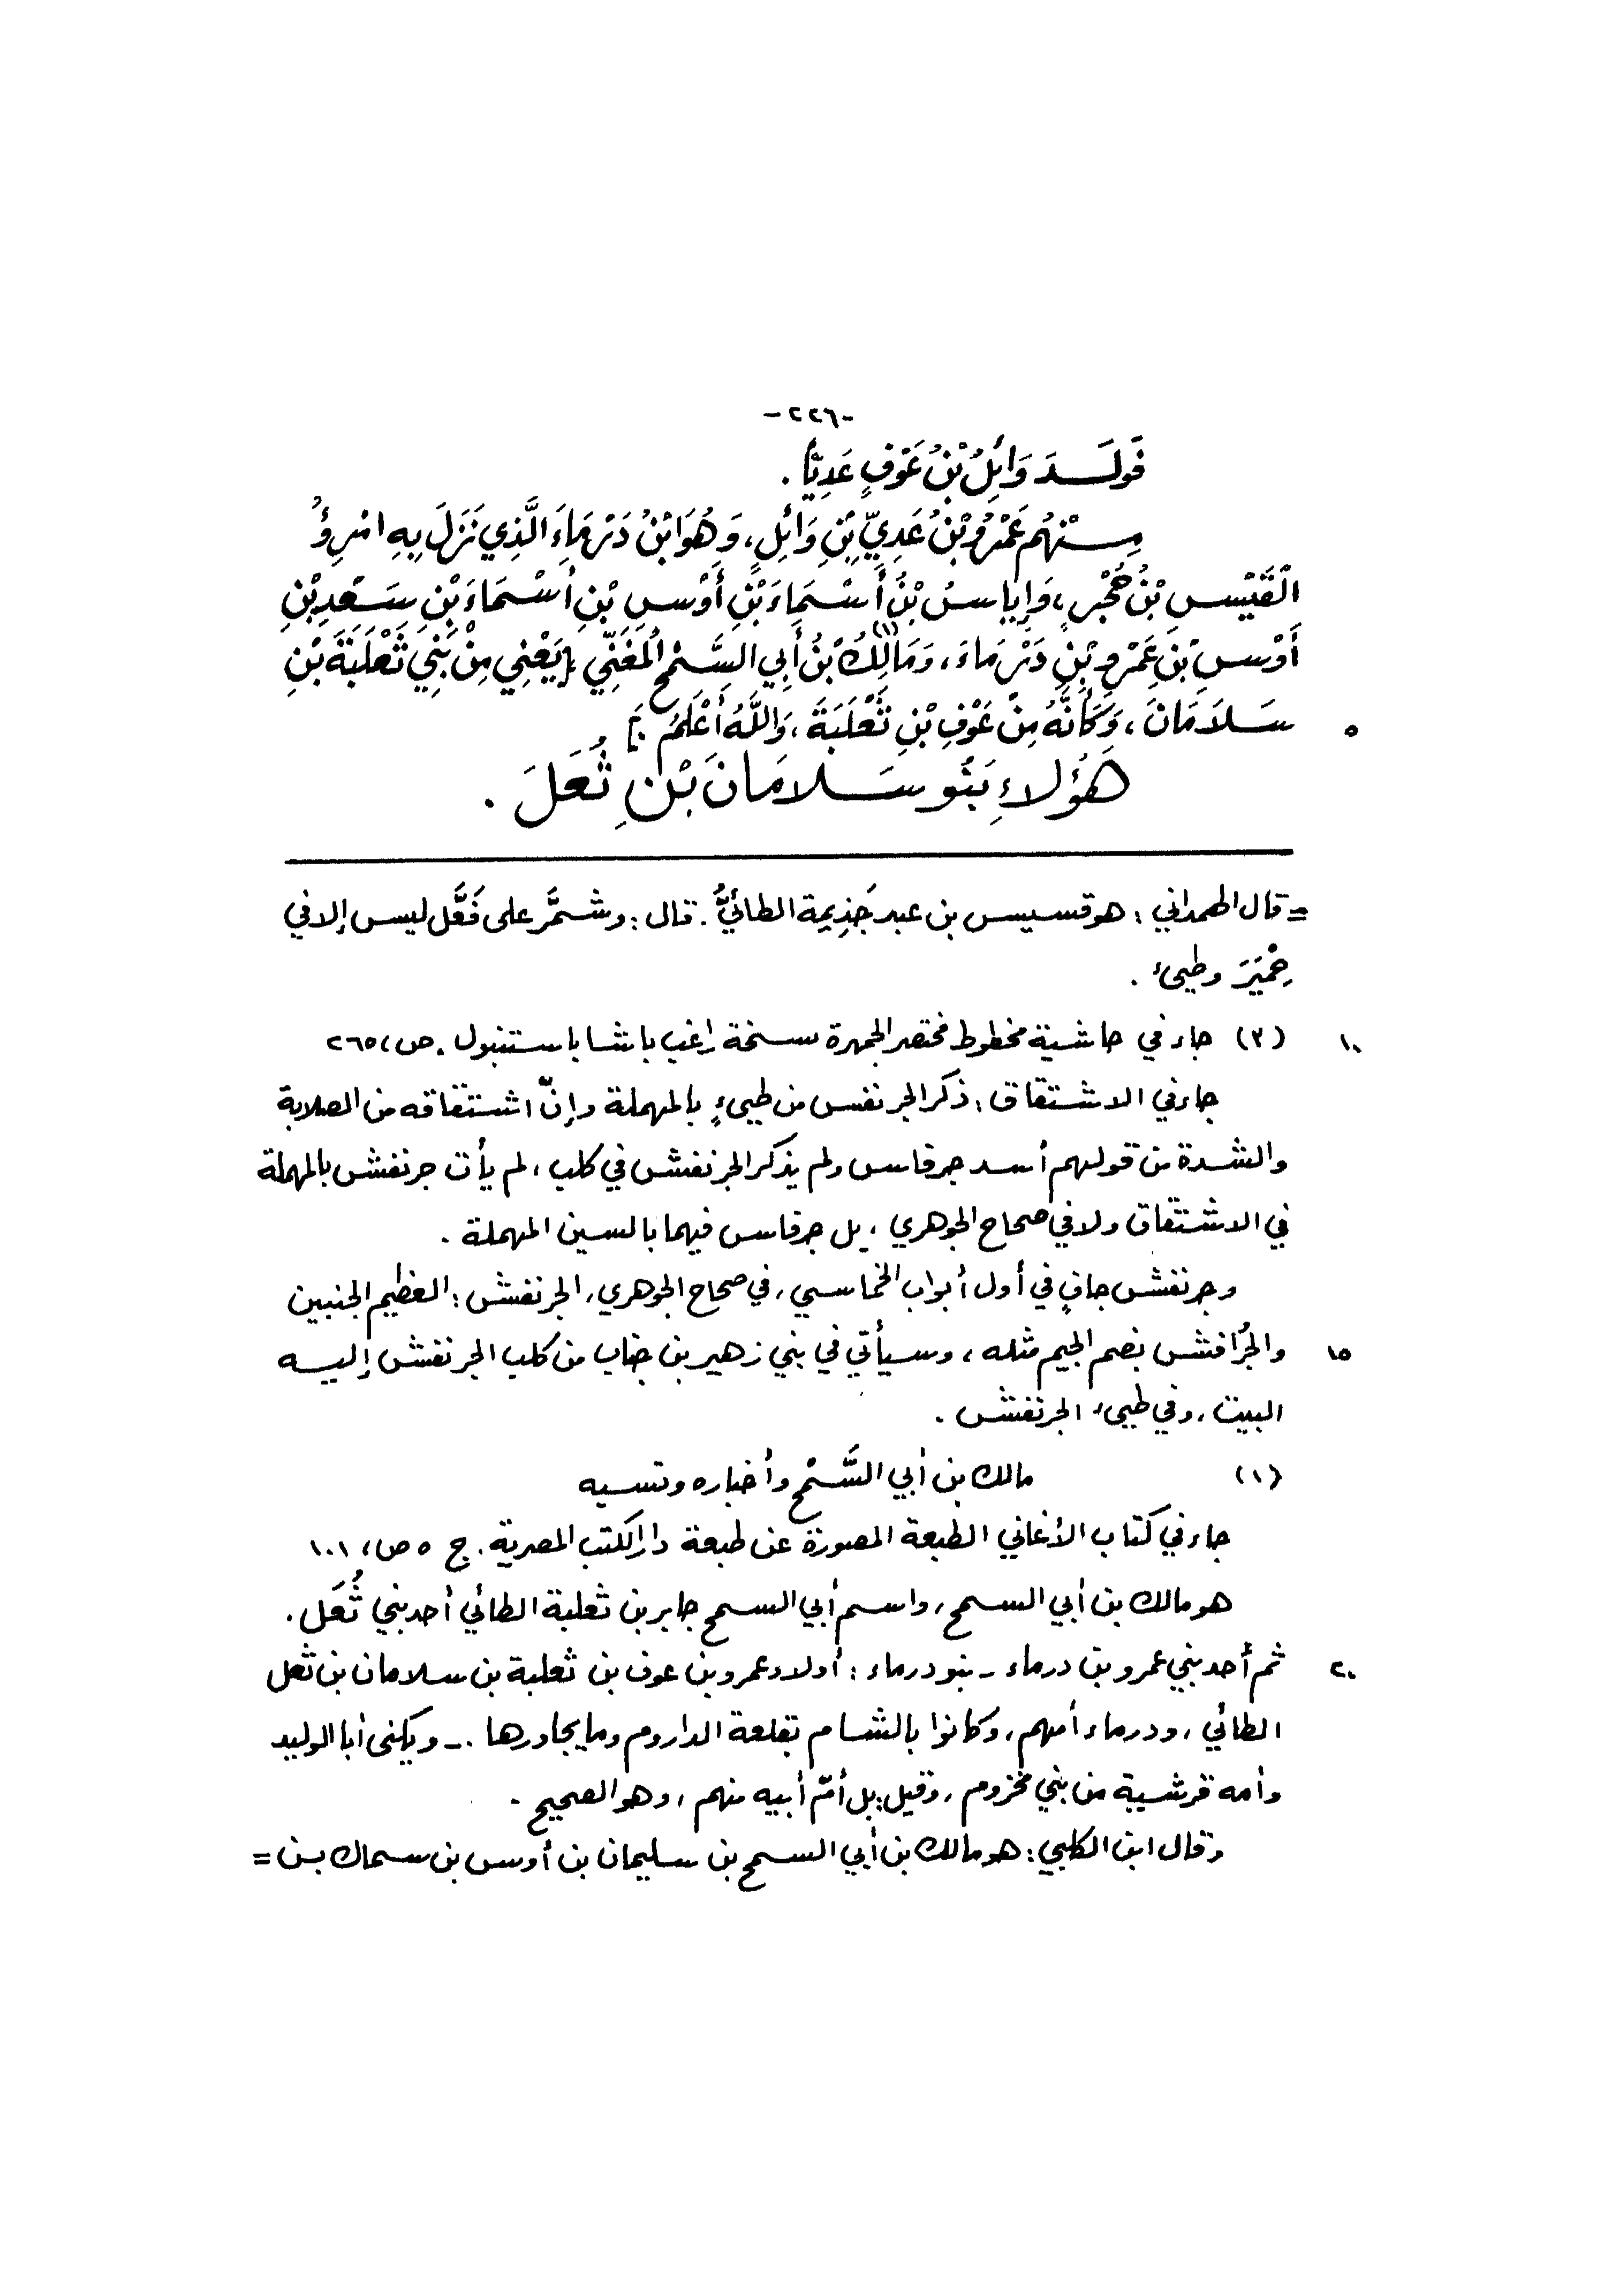 -٢٢٦-
فَوَلَدَ وَائِلُ بْنُ عَوْفٍ عَدِيّاً .
مِنْهُم عَمْرُو بْنُ عَدِيِّ بْنِ وَائِلٍ، وَهُوَ ابْنُ دَرْمَاءَ الَّذِي نَزَلَ بِهِ امْرِؤُ
الْقَيْسِ بْنُ حُجْرٍ، وَإِيَاسُ بْنُ أَسْمَاءَ بْنِ أَوْسِ بْنِ أَسْمَاءَ بْنِ سَعْدِ بْنِ
أَوْسِ بْنِ عَمْرِو بْنِ دَرْمَاءَ، وَمَالِكُ (١) بْنُ أَبِي السَّمْحِ الْمُغَنِّي [يَعْنِي مِنْ بَنِي ثَعْلَبَةَ بْنِ
سَلاَمَانَ، وَكَأَنَّهُ مِنْ عَوْفِ بْنِ ثَعْلَبَةَ، وَاللَّهُ أَعْلَمُ .] ٥
هَؤُلاءِ بَنُو سَلامَانَ بْنِ ثُعَلَ .
= قال الهمداني : هو قسيس بن عبد جَذِيمة الطائيُّ . قال : وشمَّر على فَعَّل ليس إلا في
حِمْيَرَ وطيىء .
(٣) جاء في حاشية مخطوط مختصر الجمهرة نسخة راغب باشا باستنبول . ص، ٢٦٥ ١٠
جاء في الاشتقاق : ذكر الجرنفس من طيىءٍ بالمهملة وإنّ اشتقاقه من الصلابة
والشدة من قولهم أسد جرفاس ولم يذكر الجرنفش في كلب ، لم يأت جرنفش بالمهملة
في الاشتقاق ولا في صحاح الجوهري ، بل جرفاس فيهما بالسين المهملة .
وجرنفش جافٍ في أول أبواب الخماسي ، في صحاح الجوهري ، الجرنفش : العظيم الجنبين
والجُرافش بضم الجيم مثله ، وسيأتي في بني زهير بن جناب من كلب الجرنفش إليه ١٥
البيت ، وفي طيىء الجرنفش .
(١) مالك بن أبي السَّمْح وأخباره ونسبه
جاء في كتاب الأغاني الطبعة المصورة عن طبعة دار الكتب المصرية . ج ٥ ص، ١٠١
هو مالك بن أبي السمح ، واسم أبي السمح جابر بن ثعلبة الطائي أحد بني ثُعَل .
ثم أحد بني عمرو بن درماء - بنو درماء : أولاد عمرو بن عوف بن ثعلبة بن سلامان بن ثعل ٢٠
الطائي ، ودرماء أمهم ، وكانوا بالشام بقلعة الداروم وما يجاورها .- ويكنى أبا الوليد
وأمه قرشية من بني مخزوم ، وقيل : بل أمّ أبيه منهم ، وهو الصحيح .
وقال ابن الكلبي : هو مالك بن أبي السمح بن سليمان بن أوس بن سماك بن =